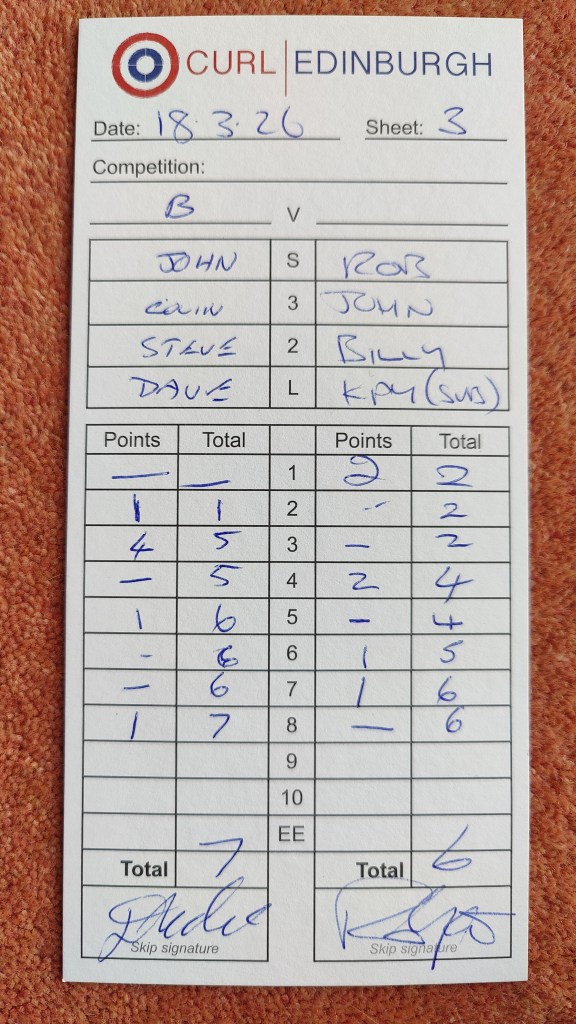 CURL EDINBURGH
Date: 18.3.26 Sheet: 3
Competition:
B V
JOHN S ROB
COLIN 3 JOHN
STEVE 2 BILLY
DAVE L (SUB)
Points Total Points Total
— — 1 2 2
1 1 2 - 2
4 5 3 — 2
— 5 4 2 4
1 6 5 — 4
- 6 6 1 5
— 6 7 1 6
1 7 8 — 6
9
10
7 EE 6
Total Total
Skip signature Skip signature